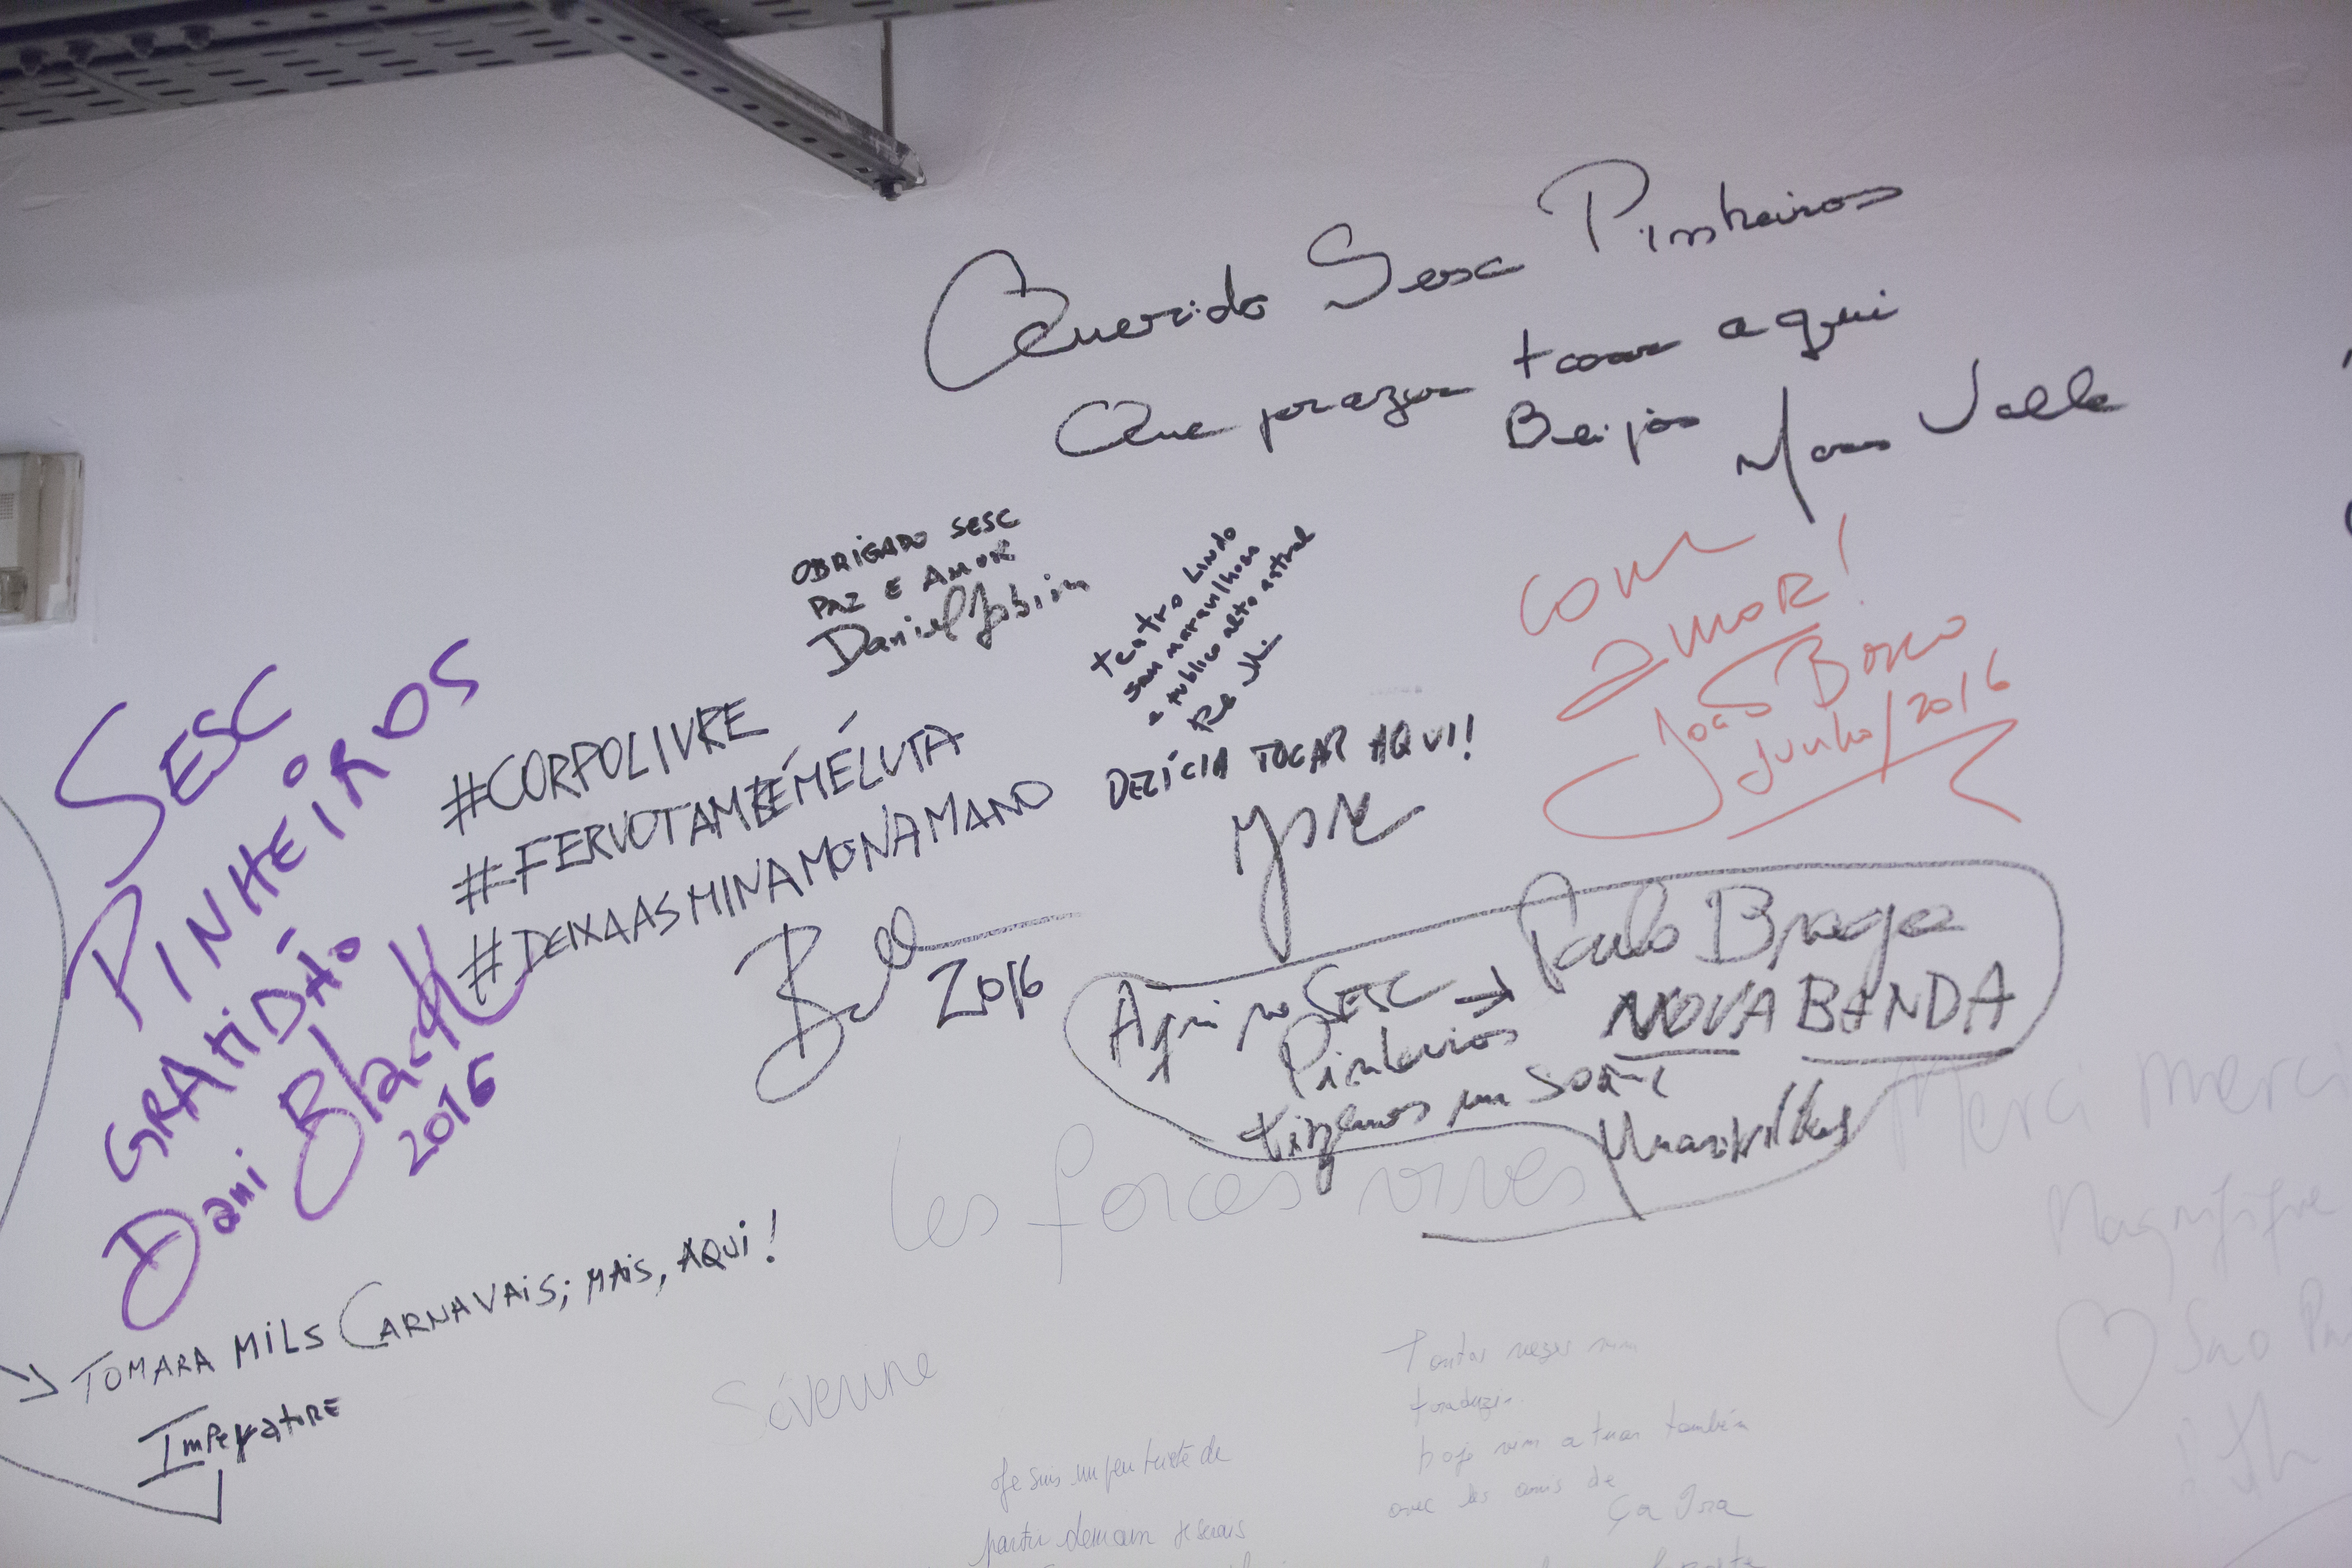 Querido Sesc Pinheiros
Que prazer tocar aqui
Beijos Marcos Valle
OBRIGADO SESC
PAZ E AMOR
Daniel Jobim
teatro Lindo
som maravilhoso
e publico alto astral
com
amor!
João Bosco
Junho/2016
SESC
PINHEIROS
GRATIDÃO
Dani Black
2016
#CORPOLIVRE
#FERVOTAMBÉMÉLUTA
#DEIXAASMINAMONAMANO
2016
DELÍCIA TOCAR AQUI!
Aqui no SESC → Paulo Braga
Pinheiros NOVA BANDA
tivemos um som
Maravilhoso
TOMARA MILS CARNAVAIS; MAIS, AQUI!
IMPERATORE
Les forces vives
Merci merci
Magnifique
Séverine
Sao
Je suis un peu triste de
partir demain je serais
Tantas vezes vim
traduzir
hoje vim atuar também
avec les amis de
Ça Ira